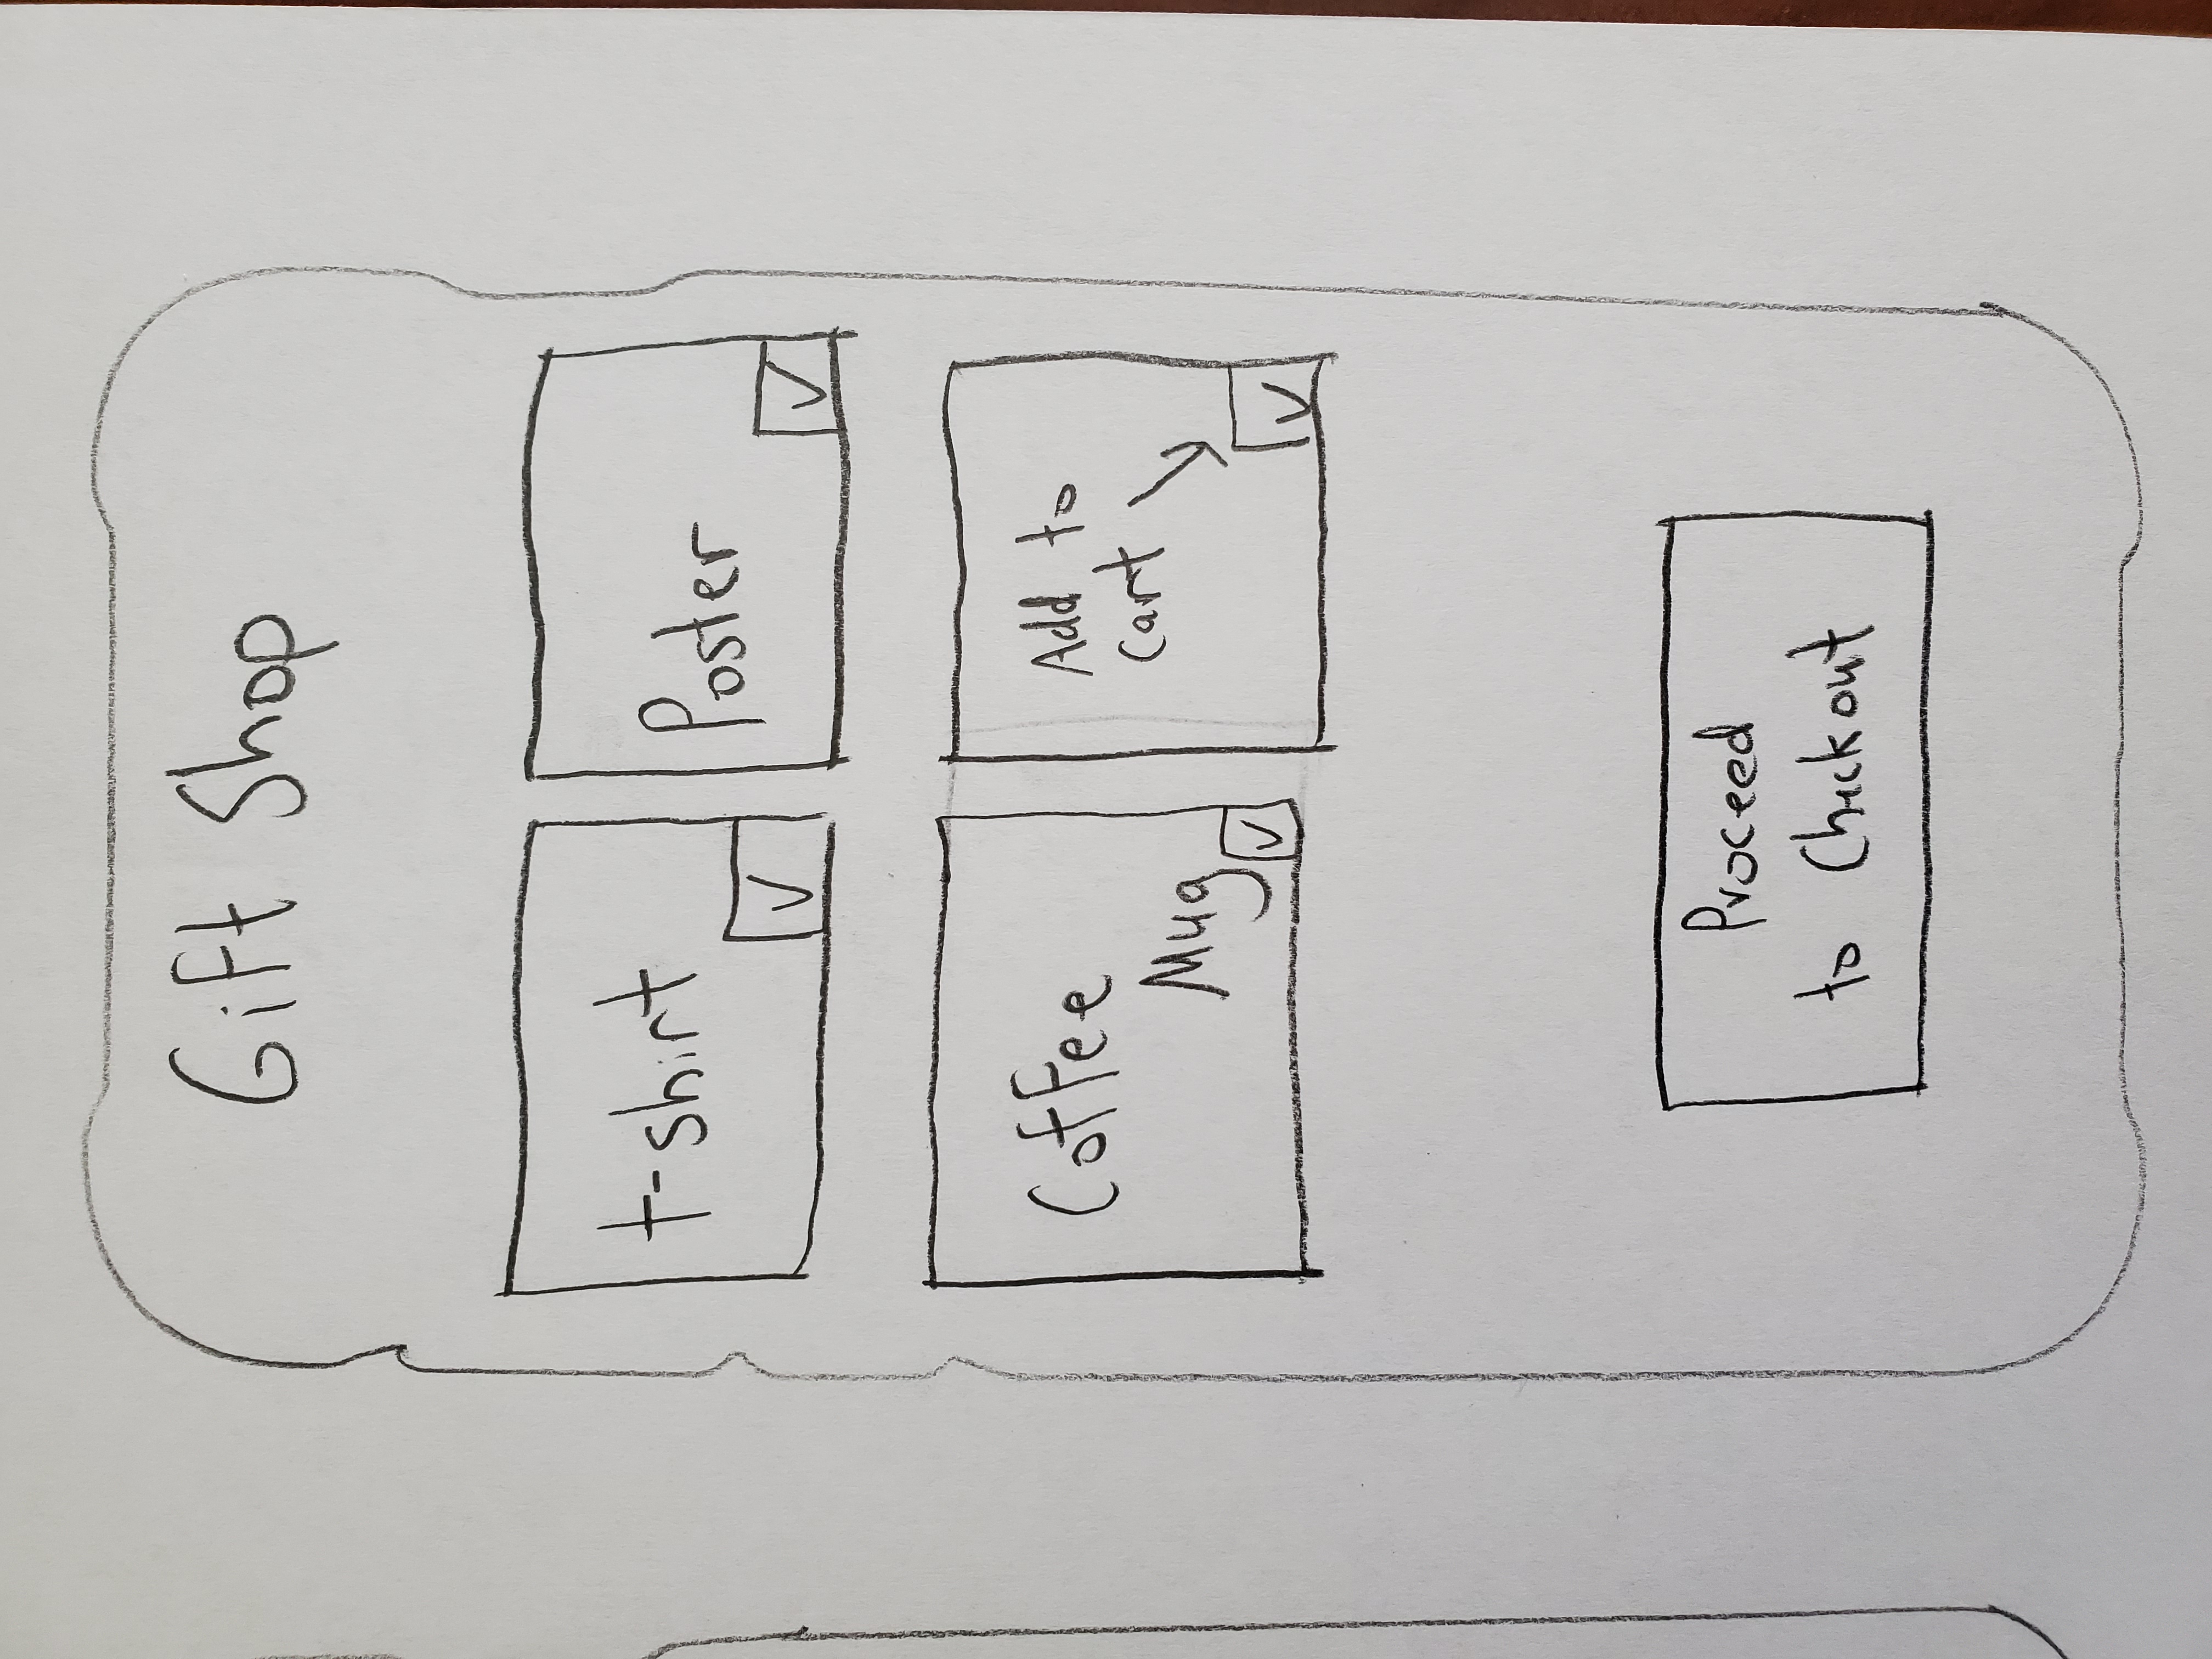 Gift Shop
t-shirt
Poster
Coffee
Mug
Add to
Cart
Proceed
to Checkout